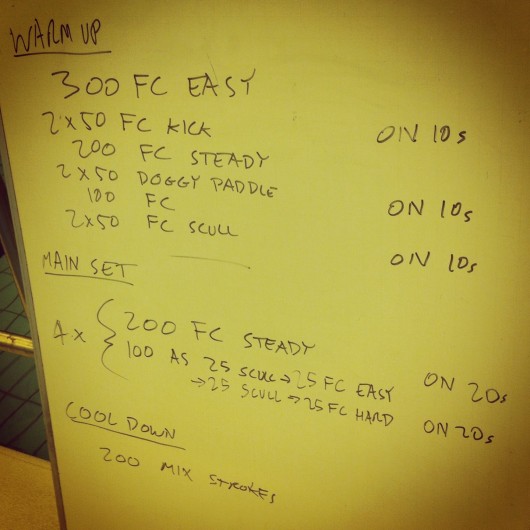 WARM UP
300 FC EASY
2x50 FC KICK ON 10s
200 FC STEADY
2x50 DOGGY PADDLE ON 10s
100 FC
2x50 FC SCULL ON 10s
MAIN SET
4x { 200 FC STEADY ON 20s
100 AS 25 SCULL → 25 FC EASY
→ 25 SCULL → 25 FC HARD ON 20s
COOL DOWN
200 MIX STROKES